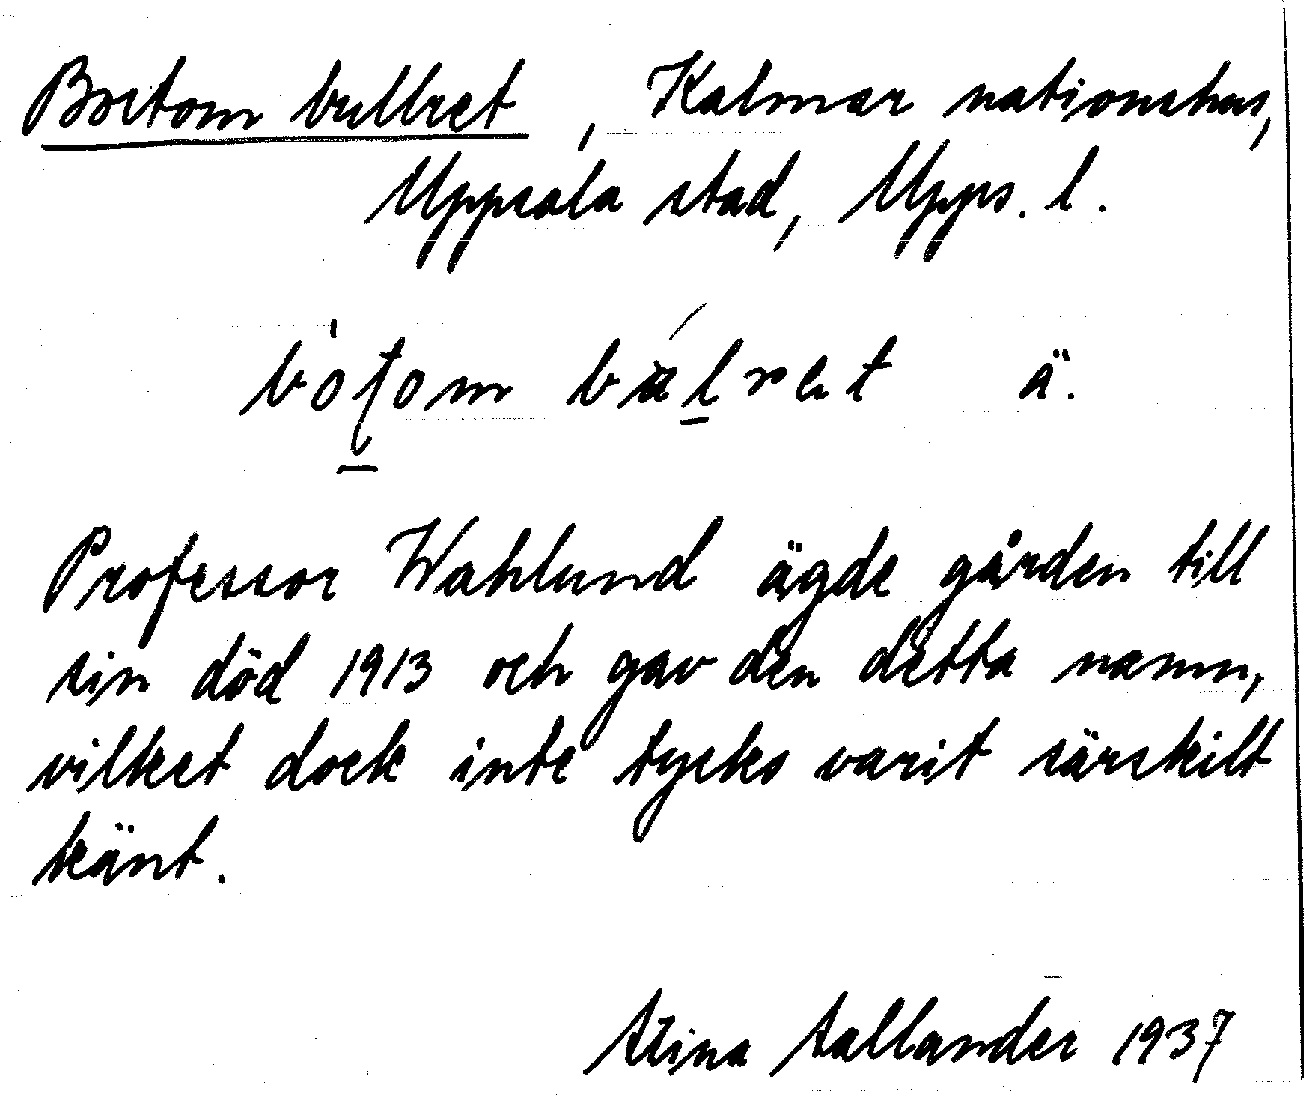 Bortom bullret, Kalmar nationshus,
Uppsala stad, Upps. l.
ä.
Professor Wahlund ägde gården till
sin död 1913 och gav den detta namn,
vilket dock inte tycks varit särskilt
känt.
Stina Sallander 1937